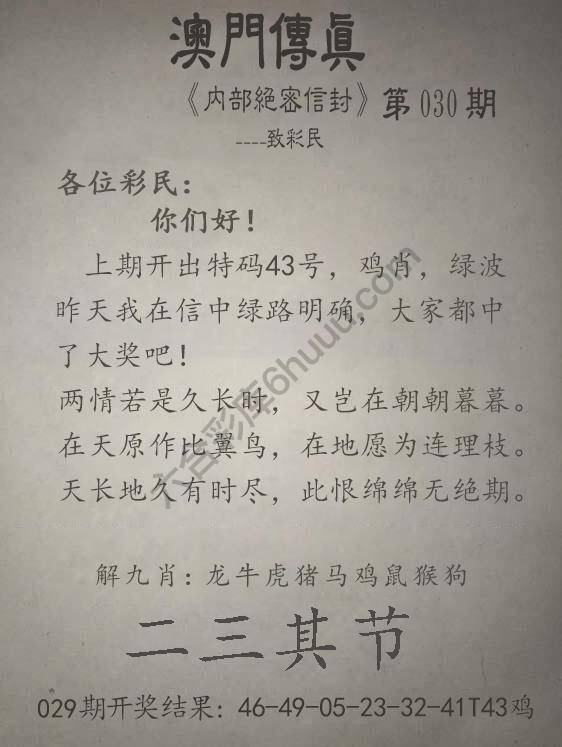 澳門傳真
《内部絕密信封》第030期
----致彩民
各位彩民：
你们好！
上期开出特码43号，鸡肖，绿波
昨天我在信中绿路明确，大家都中
了大奖吧！
两情若是久长时，又岂在朝朝暮暮。
在天原作比翼鸟，在地愿为连理枝。
天长地久有时尽，此恨绵绵无绝期。
解九肖：龙牛虎猪马鸡鼠猴狗
二三其节
029期开奖结果：46-49-05-23-32-41T43鸡
六合彩库6huuu.com